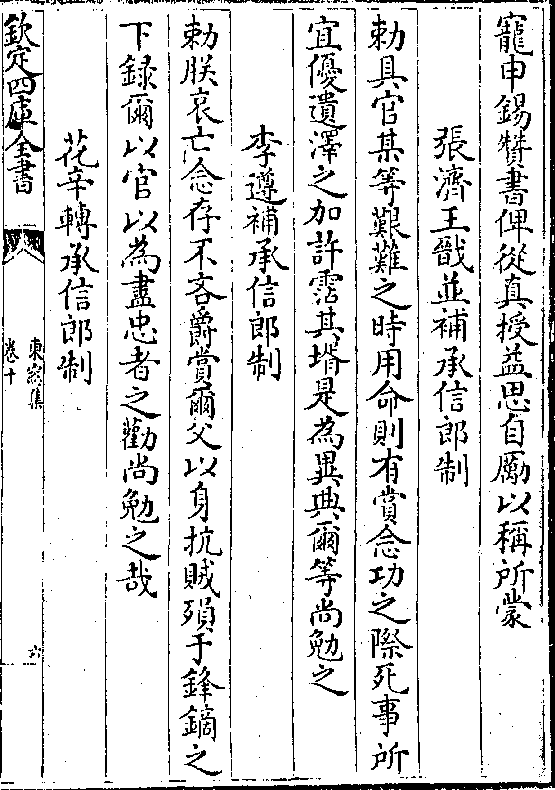 寵申錫贊書俾從真授益思自勵以稱所蒙
張濟王戩並補承信郎制
勅具官某等艱難之時用命則有賞念功之際死事所
宜優遺澤之加許霑其壻是為異典爾等尚勉之
李遵補承信郎制
勅朕哀亡念存不吝爵賞爾父以身抗賊殞于鋒鏑之
下録爾以官以為盡忠者之勸尚勉之哉
花辛轉承信郎制
欽定四庫全書
東窓集
卷十
六